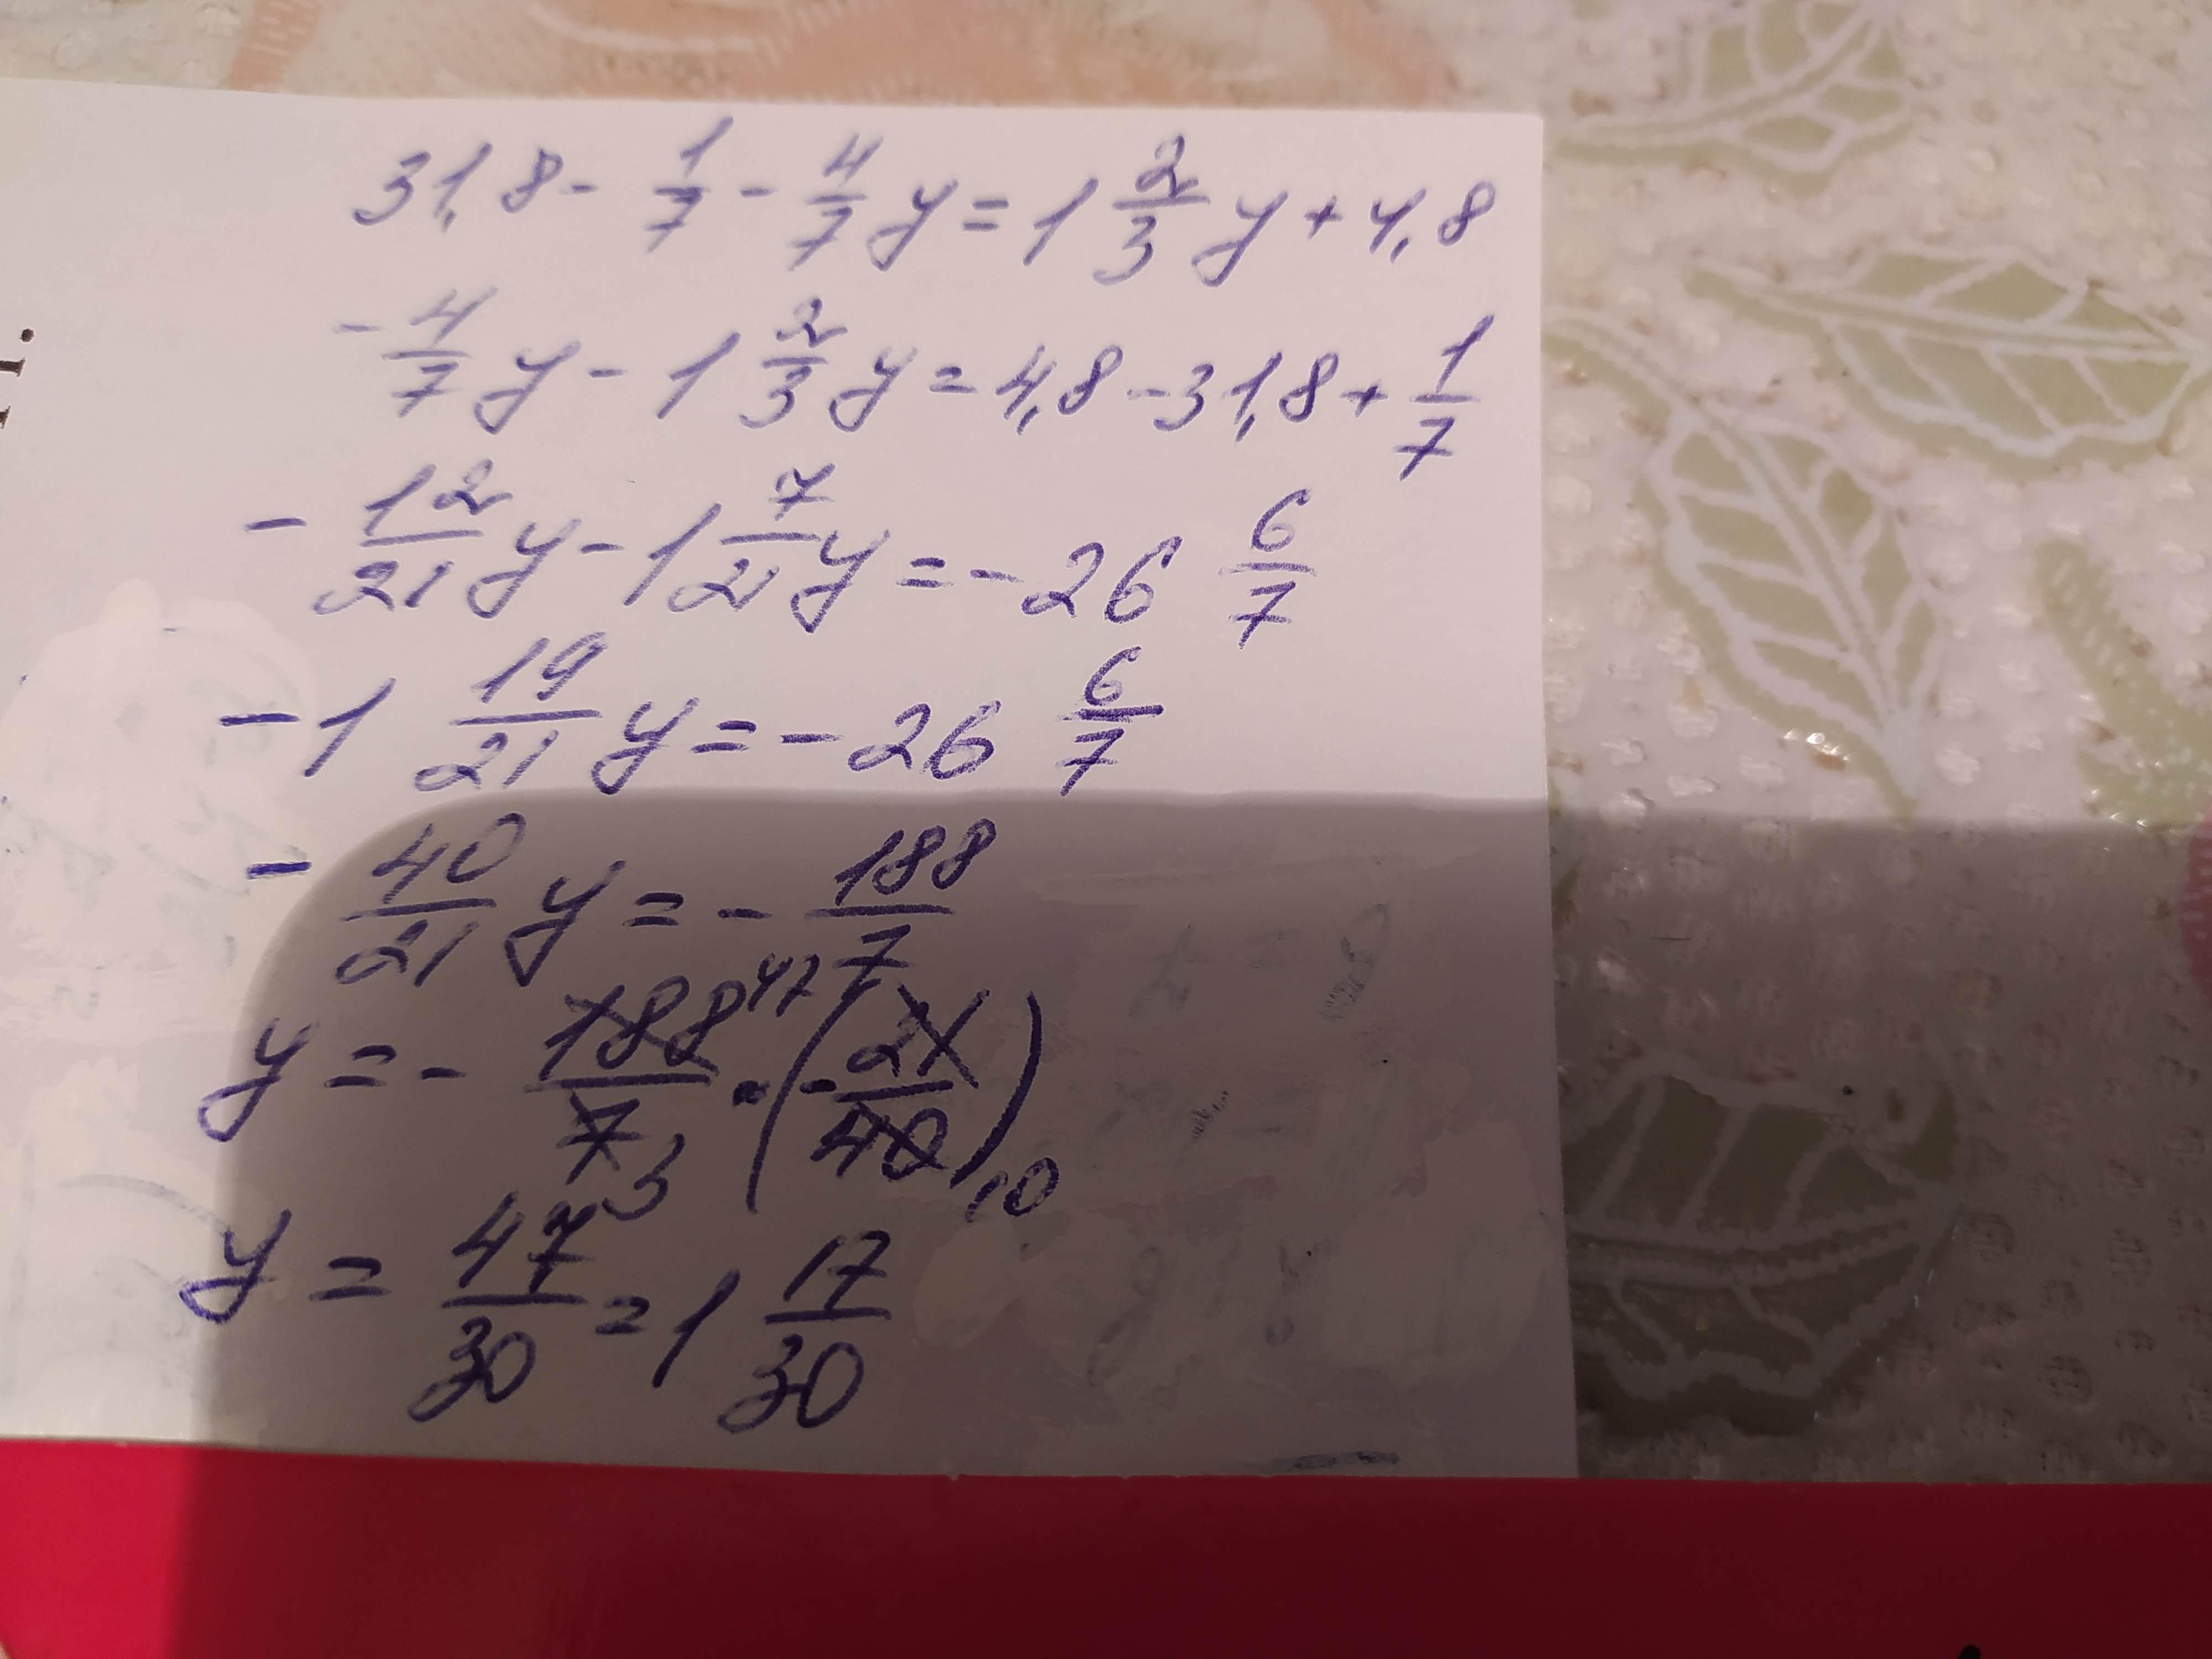 31,8 - 1/7 - 4/7 y = 1 2/3 y + 4,8
- 4/7 y - 1 2/3 y = 4,8 - 31,8 + 1/7
- 12/21 y - 1 7/21 y = - 26 6/7
- 1 19/21 y = - 26 6/7
- 40/21 y = - 188/7
y = - 188 47/7 · (- 21/40) 10
3
y = 47/30 = 1 17/30